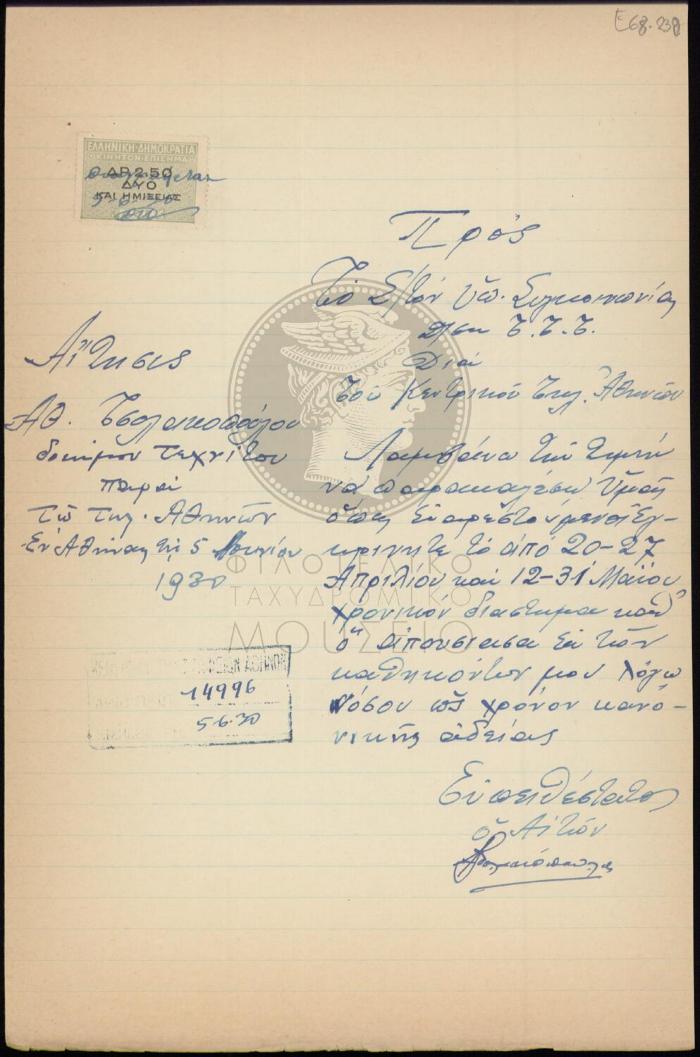 Ε68.238
ΕΛΛΗΝΙΚΗ·ΔΗΜΟΚΡΑΤΙΑ
ΚΙΝΗΤΟΝ·ΕΠΙΣΗΜΑ
ΔΡ 2.50
ΔΥΟ
ΚΑΙ ΗΜΙΣΕΙΑΣ
Πρὸς
Τὸ Σ/τὸν Ὑπ. Συγκοινωνίας
Δ/σιν Τ.Τ.Τ.
Διὰ
τοῦ Κεντρικοῦ Τηλ. Ἀθηνῶν
Αἴτησις
Αθ. Τσολακοπούλου
δοκίμου τεχνίτου
παρὰ
τῷ Τηλ. Ἀθηνῶν
Ἐν Ἀθήναις τῇ 5 Ἰουνίου
1930
Λαμβάνω τὴν τιμὴν
νὰ παρακαλέσω Ὑμᾶς
ὅπως εὐαρεστούμενοι ἐγ-
κρίνητε τὸ ἀπὸ 20-27
Απριλίου καὶ 12-31 Μαΐου
χρονικὸν διάστημα καθ'
ὃ ἀπουσίασα ἐκ τῶν
καθηκόντων μου λόγω
νόσου ὡς χρόνον κανο-
νικῆς ἀδείας
Εὐπειθέστατος
ὁ Αἰτῶν
ΦΙΛΟΤΕΛΙΚΟ
ΤΑΧΥΔΡΟΜΙΚΟ
ΜΟΥΣΕΙΟ
ΑΘΗΝΩΝ
14996
5.6.30